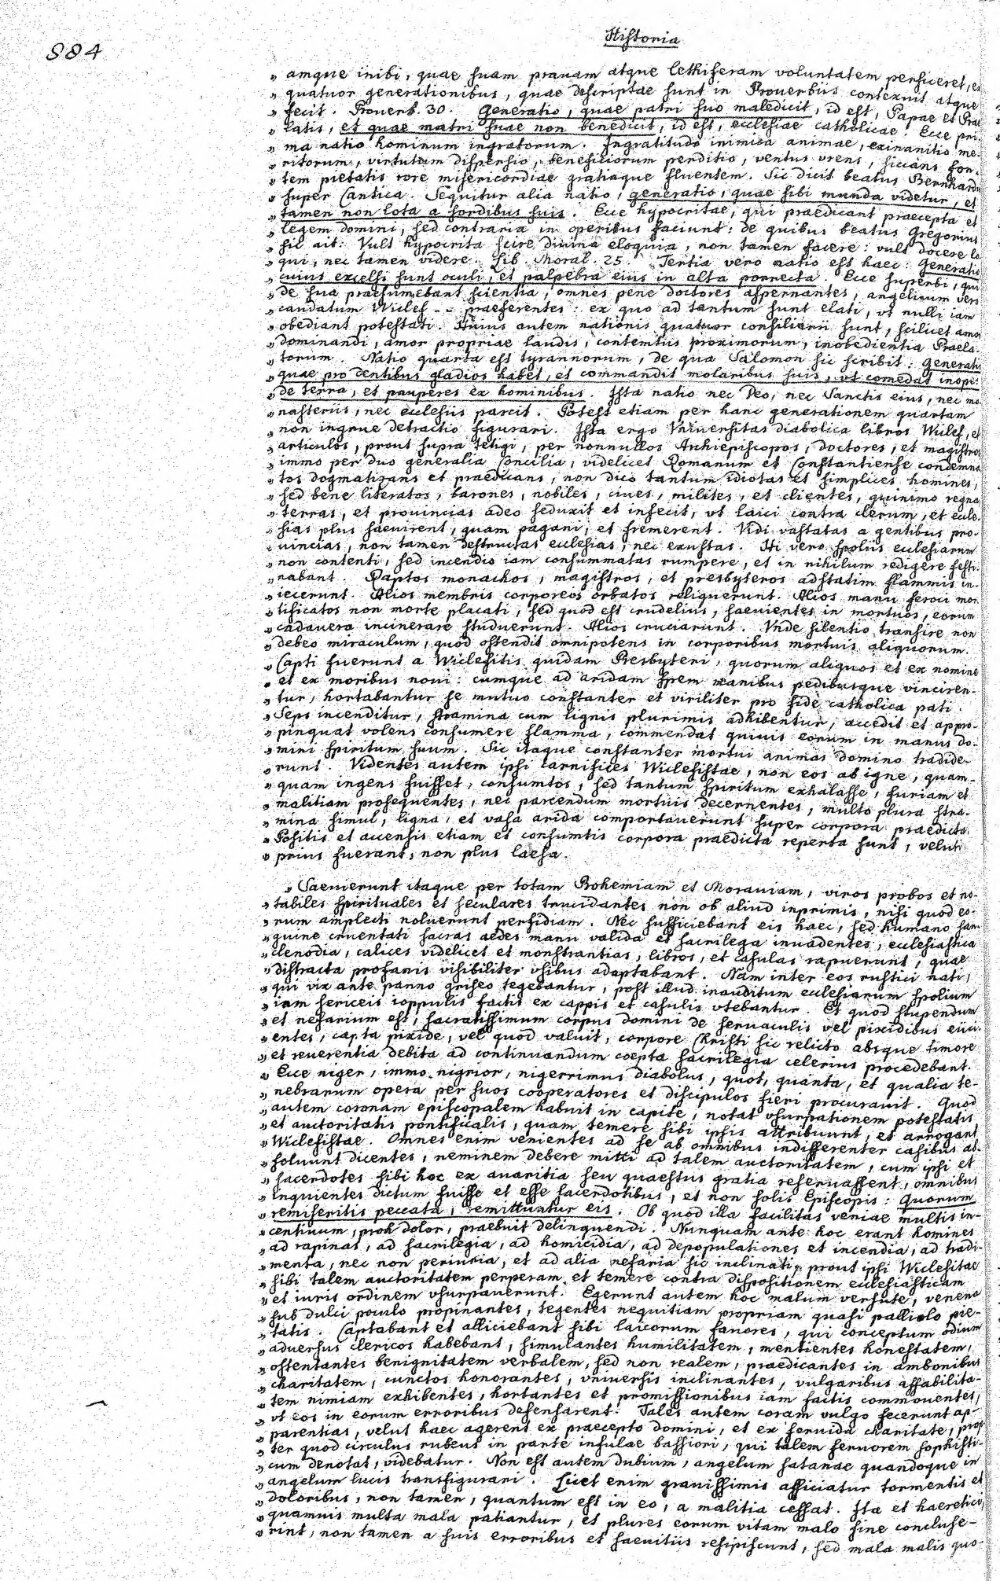 884
Historia
„ amque inibi, quae suam pravam atque lethiferam voluntatem perficeret, ex
„ quatuor generationibus, quae descriptae sunt in Proverbiis contexuit atque
„ fecit. Proverb. 30. Generatio, quae patri suo maledicit, id est, Papae et Prae
„ latis, et quae matri suae non benedicit, id est, ecclesiae catholicae. Ecce pri
„ ma natio hominum ingratorum. Ingratitudo inimica animae, exinanitio me
„ ritorum, virtutum dispersio, beneficiorum perditio, ventus urens, siccans fon
„ tem pietatis rore misericordiae gratiaque fluentem. Sic dicit beatus Bernhardus
„ super Cantica. Sequitur alia natio, generatio, quae sibi munda videtur, et
„ tamen non lota a sordibus suis. Ecce hypocritae, qui praedicant praecepta et
„ legem domini, sed contraria in operibus faciunt: de quibus beatus Gregorius
„ sic ait: Vult hypocrita scire divina eloquia, non tamen facere: vult docere lo
„ qui, nec tamen videre. Lib. Moral. 25. Tertia vero natio est haec: Generatio
„ cuius excelsi sunt oculi, et palpebra eius in alta porrecta. Ecce superbi, qui
„ de sua praesumebant scientia, omnes pene doctores aspernantes, angelium vers
„ caudatum Wiclef - - praeferentes: ex quo ad tantum sunt elati, vt nulli iam
„ obediant potestati. Huius autem nationis quatuor consiliarii sunt, scilicet amor
„ dominandi, amor propriae laudis, contemtus proximorum, inobedientia Praela
„ torum. Natio quarta est tyrannorum, de qua Salomon sic scribit: Generatio
„ quae pro dentibus gladios habet, et commandit molaribus suis, vt comedat inopes
„ de terra, et pauperes ex hominibus. Ista natio nec Deo, nec Sanctis eius, nec mo
„ nasteriis, nec ecclesiis parcit. Potest etiam per hanc generationem quartam
„ non ingrue detractio figurari. Ista ergo Vniversitas diabolica libros Wiclef, et
„ articulos, prout supra tetigi, per nonnullos Archiepiscopos, doctores, et magistros
„ immo per duo generalia Concilia, videlicet Romanum et Constantiense condemna
„ tos dogmatizans et praedicans, non dico tantum idiotas et simplices homines,
„ sed bene literatos, barones, nobiles, ciues, milites, et clientes, quinimo regna
„ terras, et prouincias adeo seduxit et infecit, vt laici contra clerum, et eccle
„ sias plus saeuirent, quam pagani, et fremerent. Vidi vastatas a gentibus pro-
„ uincias, non tamen destructas ecclesias, nec exustas. Hi vero spoliis ecclesiarum
„ non contenti, sed incendio iam consummatas rumpere, et in nihilum redigere festi
„ nabant. Raptos monachos, magistros, et presbyteros adstatim flammis in-
„ iecerunt. Alios membris corporeos orbatos reliquerunt. Alios manu feroci mor
„ tificatos non morte placati, sed quod est crudelius, saeuientes in mortuos, eorum
„ cadauera incinerare studuerunt. Alios cruciarunt. Vnde silentio transire non
„ debeo miraculum, quod ostendit omnipotens in corporibus mortuis aliquorum.
„ Capti fuerunt a Wiclefitis quidam Presbyteri, quorum aliquos et ex nomine
„ et ex moribus noui: cumque ad aridam spem manibus pedibusque vinciren-
„ tur, hortabantur se mutuo constanter et viriliter pro fide catholica pati.
„ Seps incenditur, stramina cum lignis plurimis adhibentur, accedit et appro-
„ pinquat volens consumere flamma, commendat quiuis eorum in manus do-
„ mini spiritum suum. Sic itaque constanter mortui animas domino tradide-
„ runt. Videntes autem ipsi carnifices Wiclefistae, non eos ab igne, quam-
„ quam ingens fuisset, consumtos, sed tantum spiritum exhalasse, furiam et
„ malitiam prosequentes, nec parcendum mortuis decernentes, multo plura stra-
„ mina simul, ligna, et vasa arida comportauerunt super corpora praedicta
„ Positis et accensis etiam et consumtis corpora praedicta reperta sunt, veluti
„ prius fuerant, non plus laesa.
„ Saeuierunt itaque per totam Bohemiam et Morauiam, viros probos et no-
„ tabiles spirituales et seculares trucidantes non ob aliud inprimis, nisi quod eo-
„ rum amplecti noluerunt perfidiam. Nec sufficiebant eis haec, sed humano san
„ guine cruentati sacras aedes manu valida et sacrilega inuadentes, ecclesiastica
„ clenodia, calices videlicet et monstrantias, libros, et casulas rapuerunt, quae
„ distracta profanis visibiliter vsibus adaptabant. Nam inter eos rustici nati,
„ qui vix ante panno griseo tegebantur, post illud inauditum ecclesiarum spolium
„ iam sericeis ioppulis factis ex cappis et casulis vtebantur. Et quod stupendum
„ et nefarium est, sacratissimum corpus domini de seruaculis vel pixidibus eiici
„ entes, capta pixide, vel quod valuit, corpore Christi sic relicto absque timore
„ et reuerentia debita ad continuandum coepta sacrilegia celerius procedebant.
„ Ecce niger, immo nigrior, nigerrimus diabolus, quot, quanta, et qualia te-
„ nebrarum opera per suos cooperatores et discipulos fieri procurauit. Quod
„ autem coronam episcopalem habuit in capite, notat vsurpationem potestatis
„ et auctoritatis pontificalis, quam temere sibi ipsis attribuunt, et arrogant
„ Wiclefistae. Omnes enim venientes ad se ab omnibus indifferenter casibus ab-
„ soluunt dicentes, neminem debere mitti ad talem auctoritatem, cum ipsi et
„ sacerdotes sibi hoc ex auaritia seu quaestus gratia reseruassent, omnibus
„ inquientes dictum fuisse et esse sacerdotibus, et non solis Episcopis: Quorum
„ remiseritis peccata, remittuntur eis. Ob quod illa facilitas veniae multis in-
„ centiuum, proh dolor, praebuit delinquendi. Nunquam ante hoc erant homines
„ ad rapinas, ad sacrilegia, ad homicidia, ad depopulationes et incendia, ad tradi
„ menta, nec non periuria, et ad alia nefaria sic inclinati, prout ipsi Wiclefitae
„ sibi talem auctoritatem perperam et temere contra dispositionem ecclesiasticam
„ et iuris ordinem vsurpauerunt. Egerunt autem hoc malum versute, venena
„ sub dulci poculo propinantes, tegentes nequitiam propriam quasi palliolo pie-
„ tatis. Captabant et alliciebant sibi laicorum fauores, qui conceptum odium
„ aduersus clericos habebant, simulantes humilitatem, mentientes honestatem,
„ ostentantes benignitatem verbalem, sed non realem, praedicantes in ambonibus
„ charitatem, cunctos honorantes, vniuersis inclinantes, vulgaribus affabilita-
„ tem nimiam exhibentes, hortantes et promissionibus iam factis commouentes,
„ vt eos in eorum erroribus defensarent. Tales autem coram vulgo fecerunt ap-
„ parentias, velut haec agerent ex praecepto domini, et ex feruida charitate, prop
„ ter quod circulus rubeus in parte infulae bassiori, qui talem feruorem sophisti-
„ cum denotat, videbatur. Non est autem dubium, angelum satanae quandoque in
„ angelum lucis transfigurari. Licet enim grauissimis afficiatur tormentis et
„ doloribus, non tamen, quantum est in eo, a malitia cessat. Ita et haeretici,
„ quamuis multa mala patiantur, et plures eorum vitam malo fine concluse-
„ rint, non tamen a suis erroribus et saeuitiis resipiscunt, sed mala malis quo-